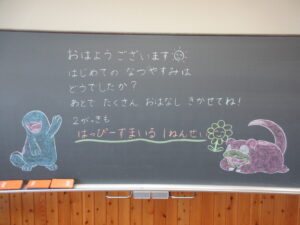 おはようございます
はじめての なつやすみは
どうでしたか？
あとで たくさん おはなし きかせてね！
2がっきも
はっぴーすまいる 1ねんせい